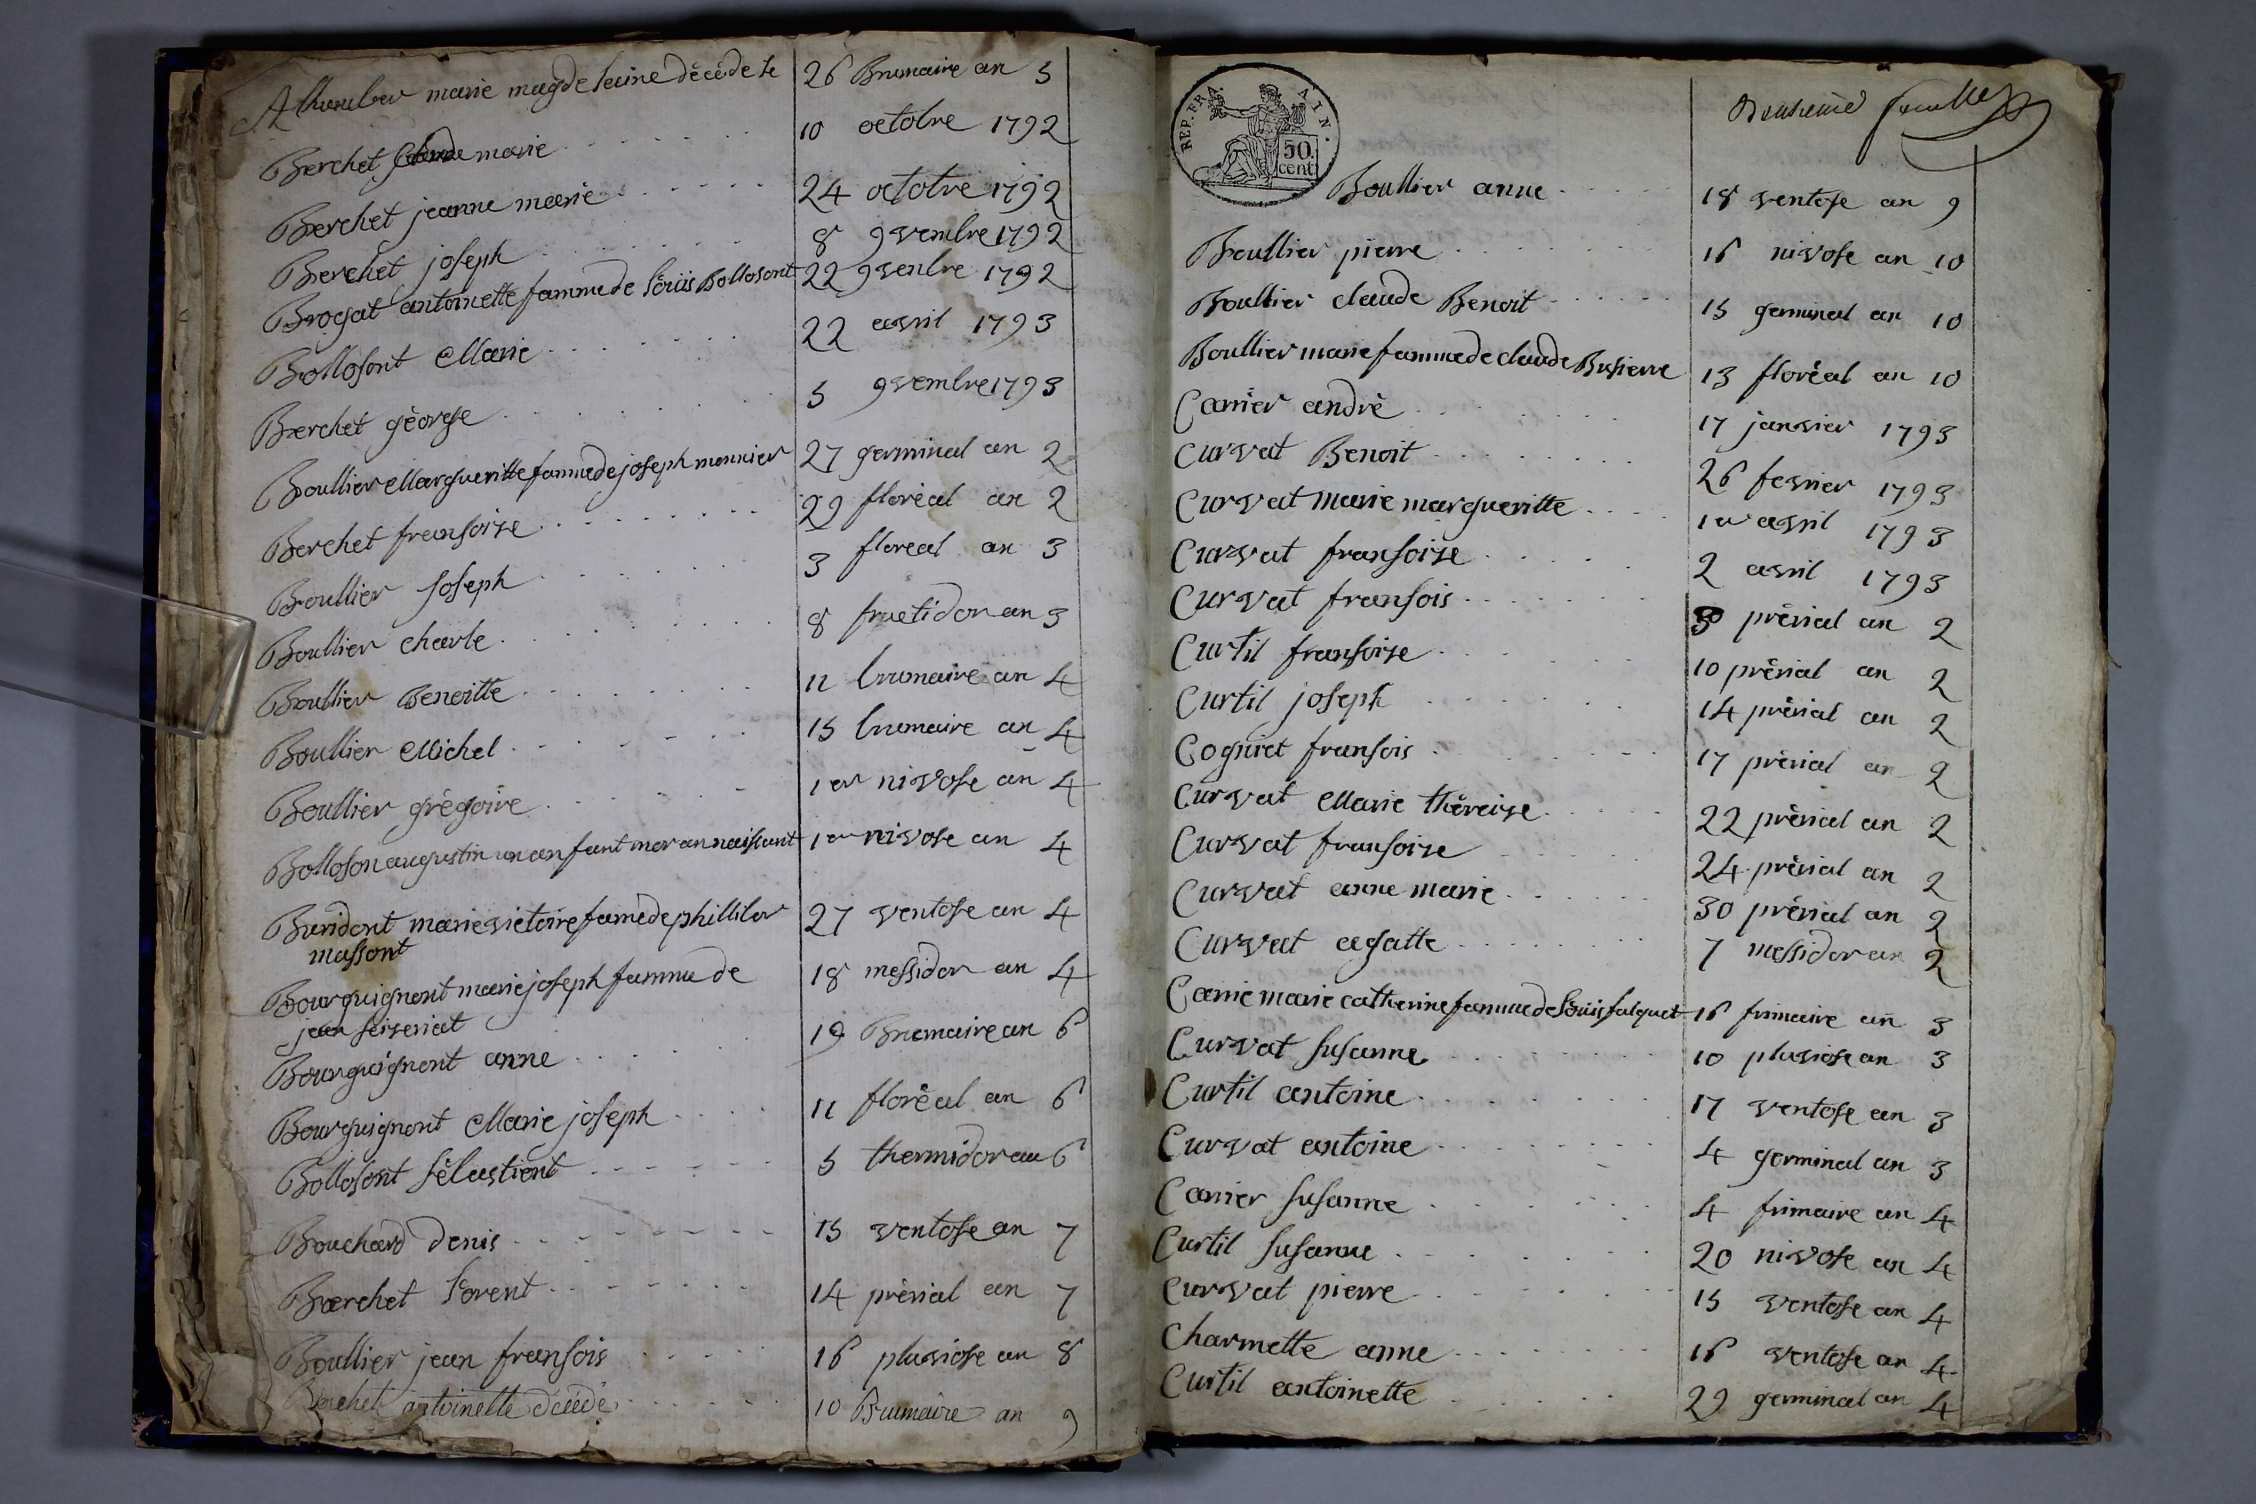 Alhumber marie magdeleine décéde le 26 Brumaire an 5
Berchet Claude marie 10 octobre 1792
Berchet jeanne marie 24 octobre 1792
Berchet joseph 8 9vembre 1792
Brogat antoinette famme de Loüis Bollosont 22 9venbre 1792
Bollosont Marie 22 avril 1793
Berchet géorge 5 9vembre 1793
Boullier Margueritte famme de joseph monnier 27 germinal an 2
Berchet fransoise 29 floréal an 2
Boullier Joseph 3 floréal an 3
Boullier charle 8 fructidor an 3
Boullier Benoitte 11 brumaire an 4
Boullier Michel 15 brumaire an 4
Boullier grégoire 1er nivose an 4
Bolloson augustin un anfant mor an naissant 1er nivose an 4
Buridont marie victoire fame de philliber 27 ventose an 4
massont
Bourguignont marie joseph famme de 18 messidor an 4
jean seizeriat
Bourguignont anne 19 Brumaire an 6
Bourguignont Marie joseph 11 floréal an 6
Bollosont sébastient 5 thermidor an 6
Bouchard denis 15 ventose an 7
Berchet Lorent 14 prérial an 7
Boullier jean fransois 16 pluviose an 8
Berchet antoinette décédé 10 Brumaire an 9
REP. FRA. 50. cent.
Deuxieme feuillet
Boullier anne 18 ventose an 9
Boullier pierre 16 nivose an 10
Boullier claude Benoit 15 germinal an 10
Boullier marie famme de claude Busierre 13 floréal an 10
Carrier andré 17 janvier 1793
Curvat Benoit 26 fevrier 1793
Curvat marie margueritte 1er avril 1793
Curvat fransoise 2 avril 1793
Curvat fransois prérial an 2
Curtil fransoise 10 prérial an 2
Curtil joseph 14 prérial an 2
Cogniet fransois 17 prérial an 2
Curvat Marie théreise 22 prérial an 2
Curvat fransoise 24 prérial an 2
Curvat anne marie 30 prérial an 2
Curvat agatte 7 messidor an 2
Carrié marie catherine famme de Loüis falquet 16 frimaire an 3
Curvat susanne 10 pluviose an 3
Curtil antoine 17 ventose an 3
Curvat antoine 4 germinal an 3
Carrier susanne 4 frimaire an 4
Curtil susanne 20 nivose an 4
Curvat pierre 15 ventose an 4
Charmette anne 16 ventose an 4
Curtil antoinette 29 germinal an 4